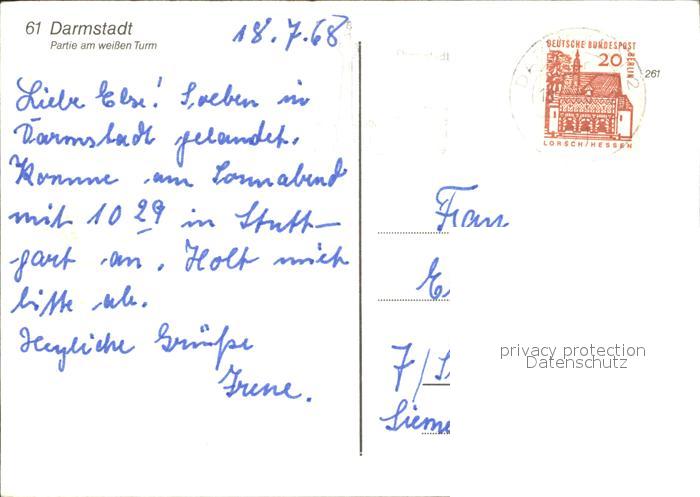 61 Darmstadt
Partie am weißen Turm
18.7.68
Liebe Else! Soeben in
Darmstadt gelandet.
Komme am Sonnabend
mit 10 29 in Stutt-
gart an. Holt mich
bitte ab.
Herzliche Grüße
Irene.
DEUTSCHE BUNDESPOST
BERLIN
20
LORSCH/HESSEN
261
Frau
E
7/S
Sieme
privacy protection
Datenschutz